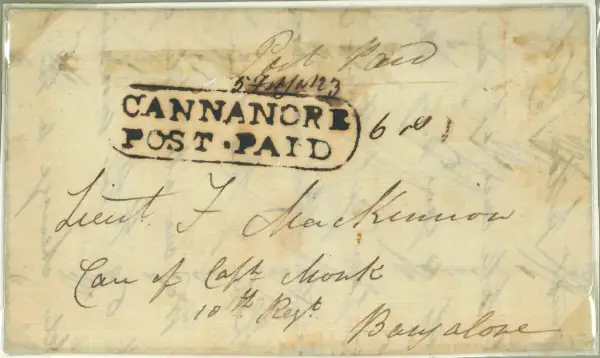 Post Paid
CANNANORE
POST · PAID
Lieut. F MacKinnon
Care of Capt. Monk
10th Regt.
Bangalore